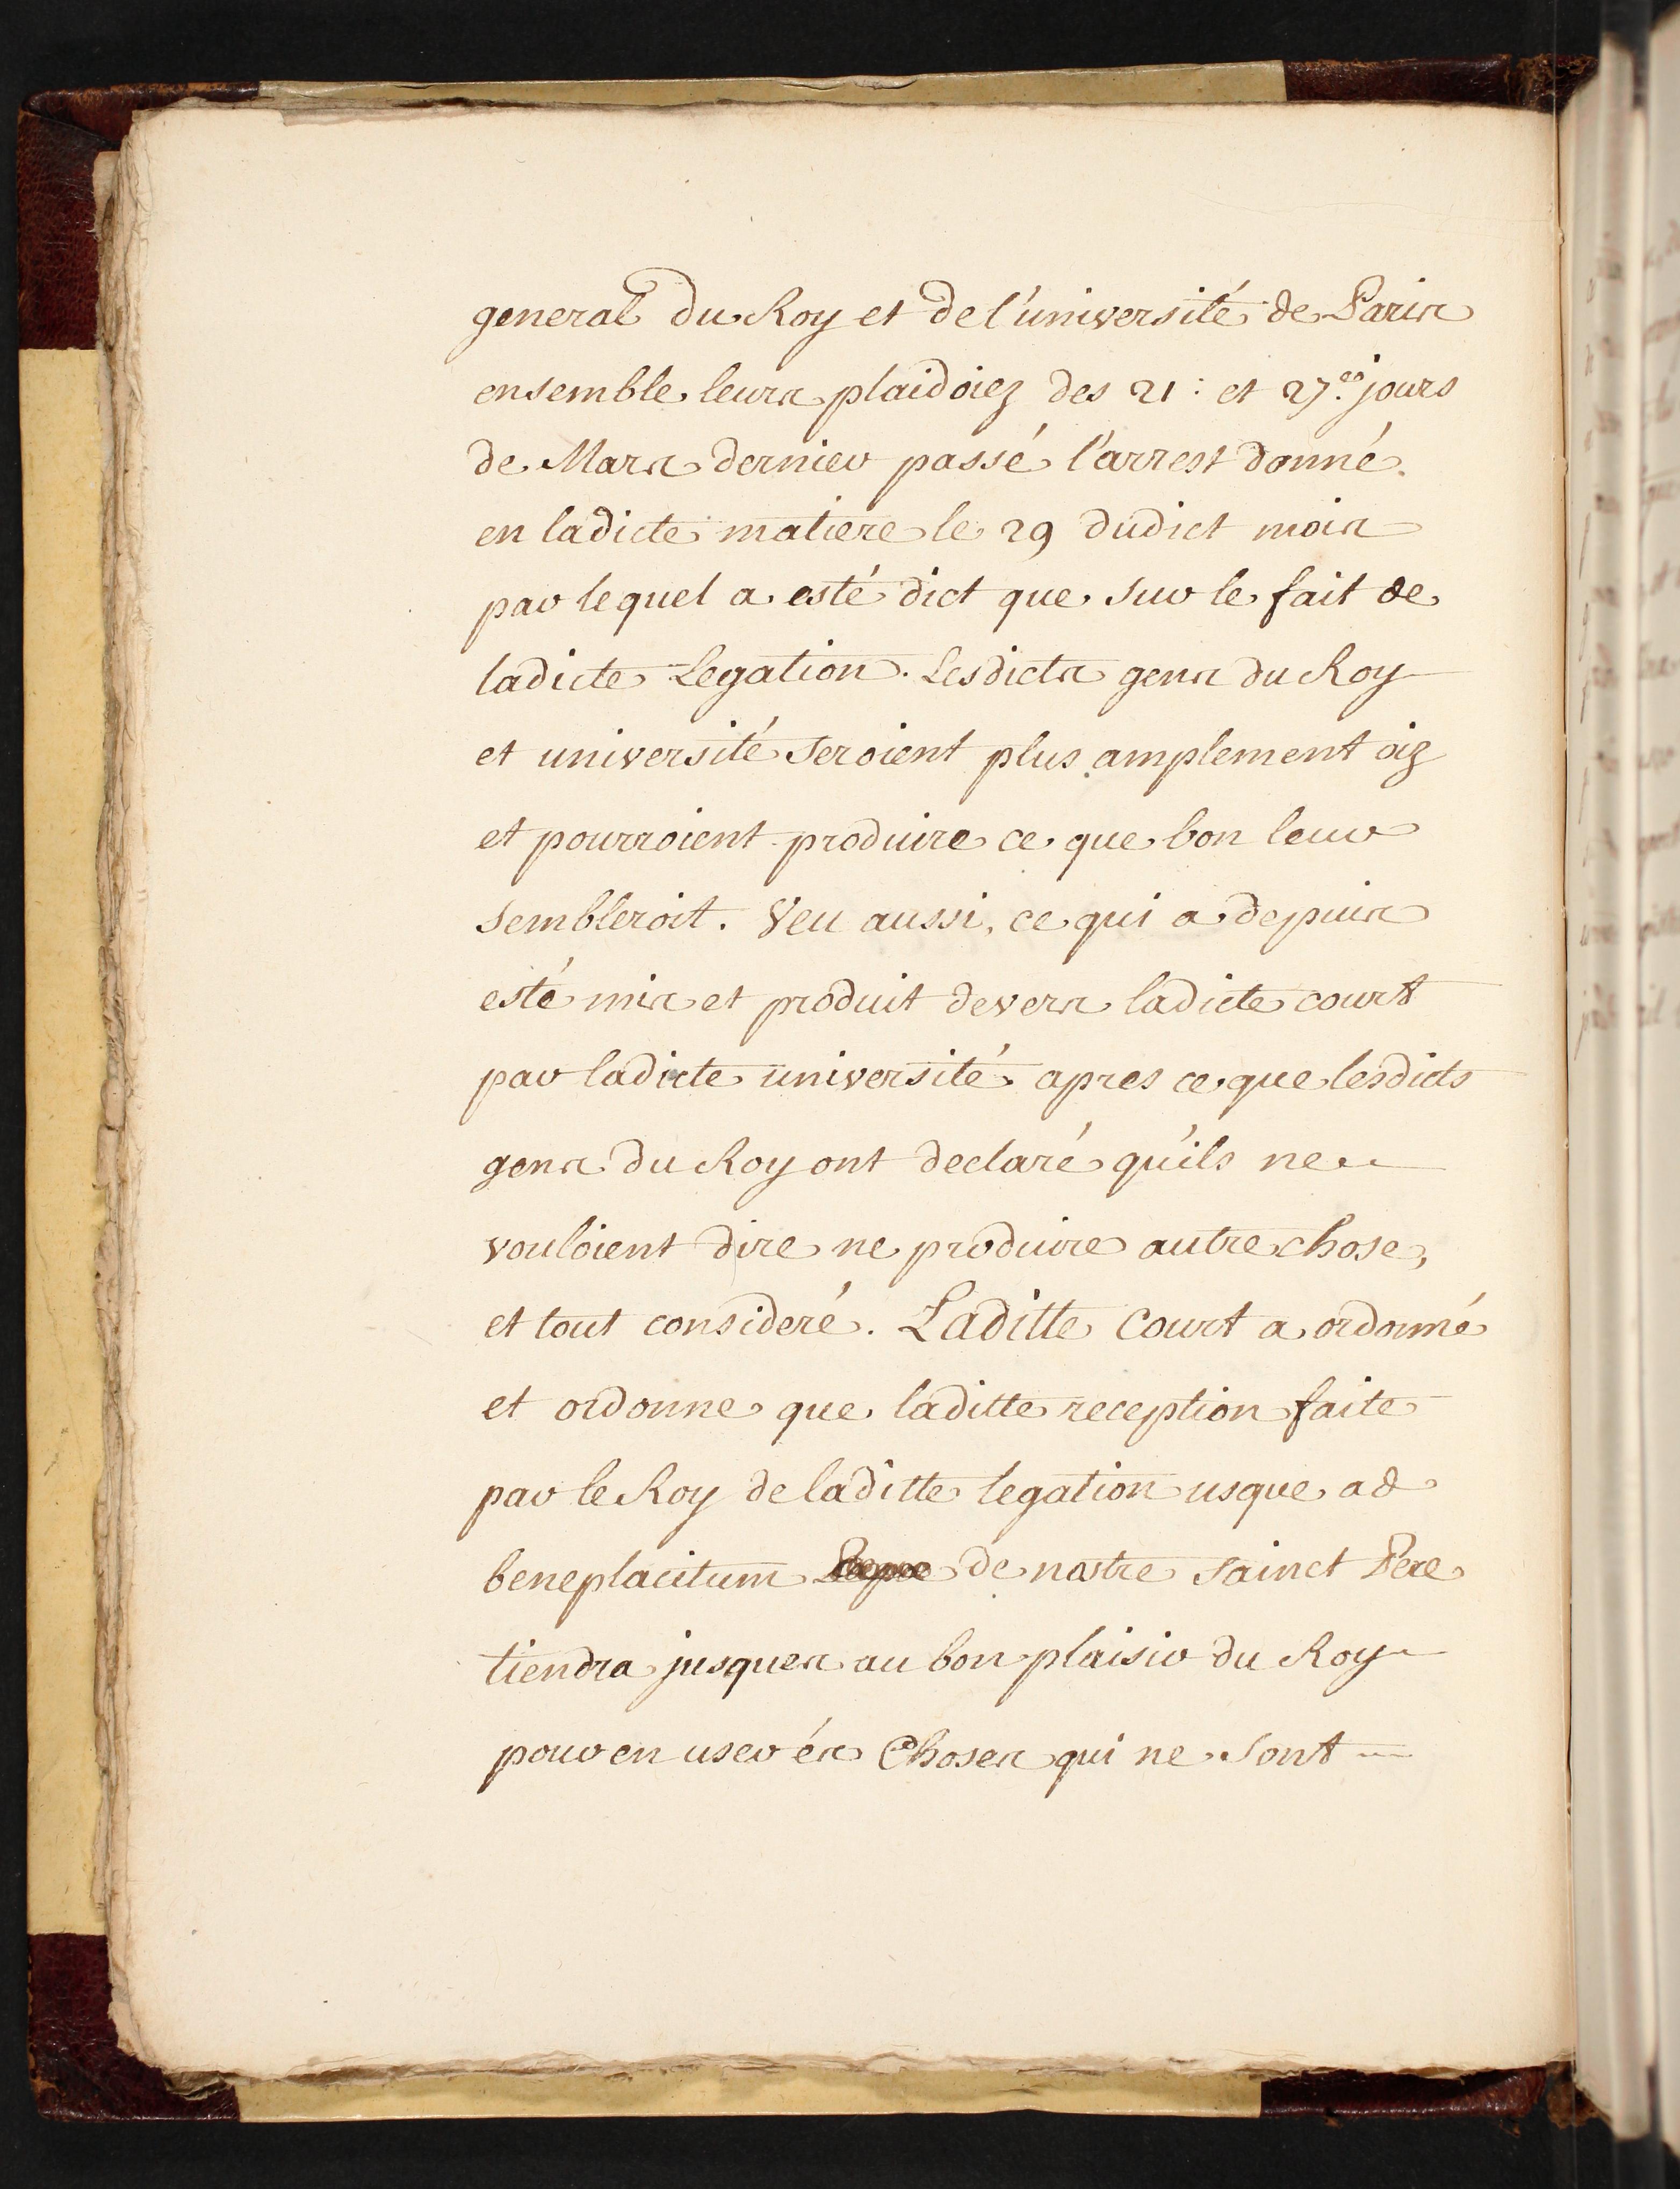 general du Roy et de l'université de Paris
ensemble leurs plaidoiez des 21: et 27.es jours
de Mars dernier passé l'arrest donné
en ladicte matiere le 29 dudict mois
par lequel a esté dict que sur le fait de
ladicte Legation. Lesdicts gens du Roy
et université seroient plus amplement oiz
et pourroient produire ce que bon leur
sembleroit. Veu aussi, ce qui a depuis
esté mis et produit devers ladicte court
par ladicte université apres ce que lesdicts
gens du Roy ont declaré qu'ils ne
vouloient dire ne produire autre chose,
et tout consideré. Laditte Court a ordonné
et ordonne que laditte reception faite
par le Roy de laditte legation usque ad
beneplacitum de nostre sainct Pere
tiendra jusques au bon plaisir du Roy
pour en user és Choses qui ne sont